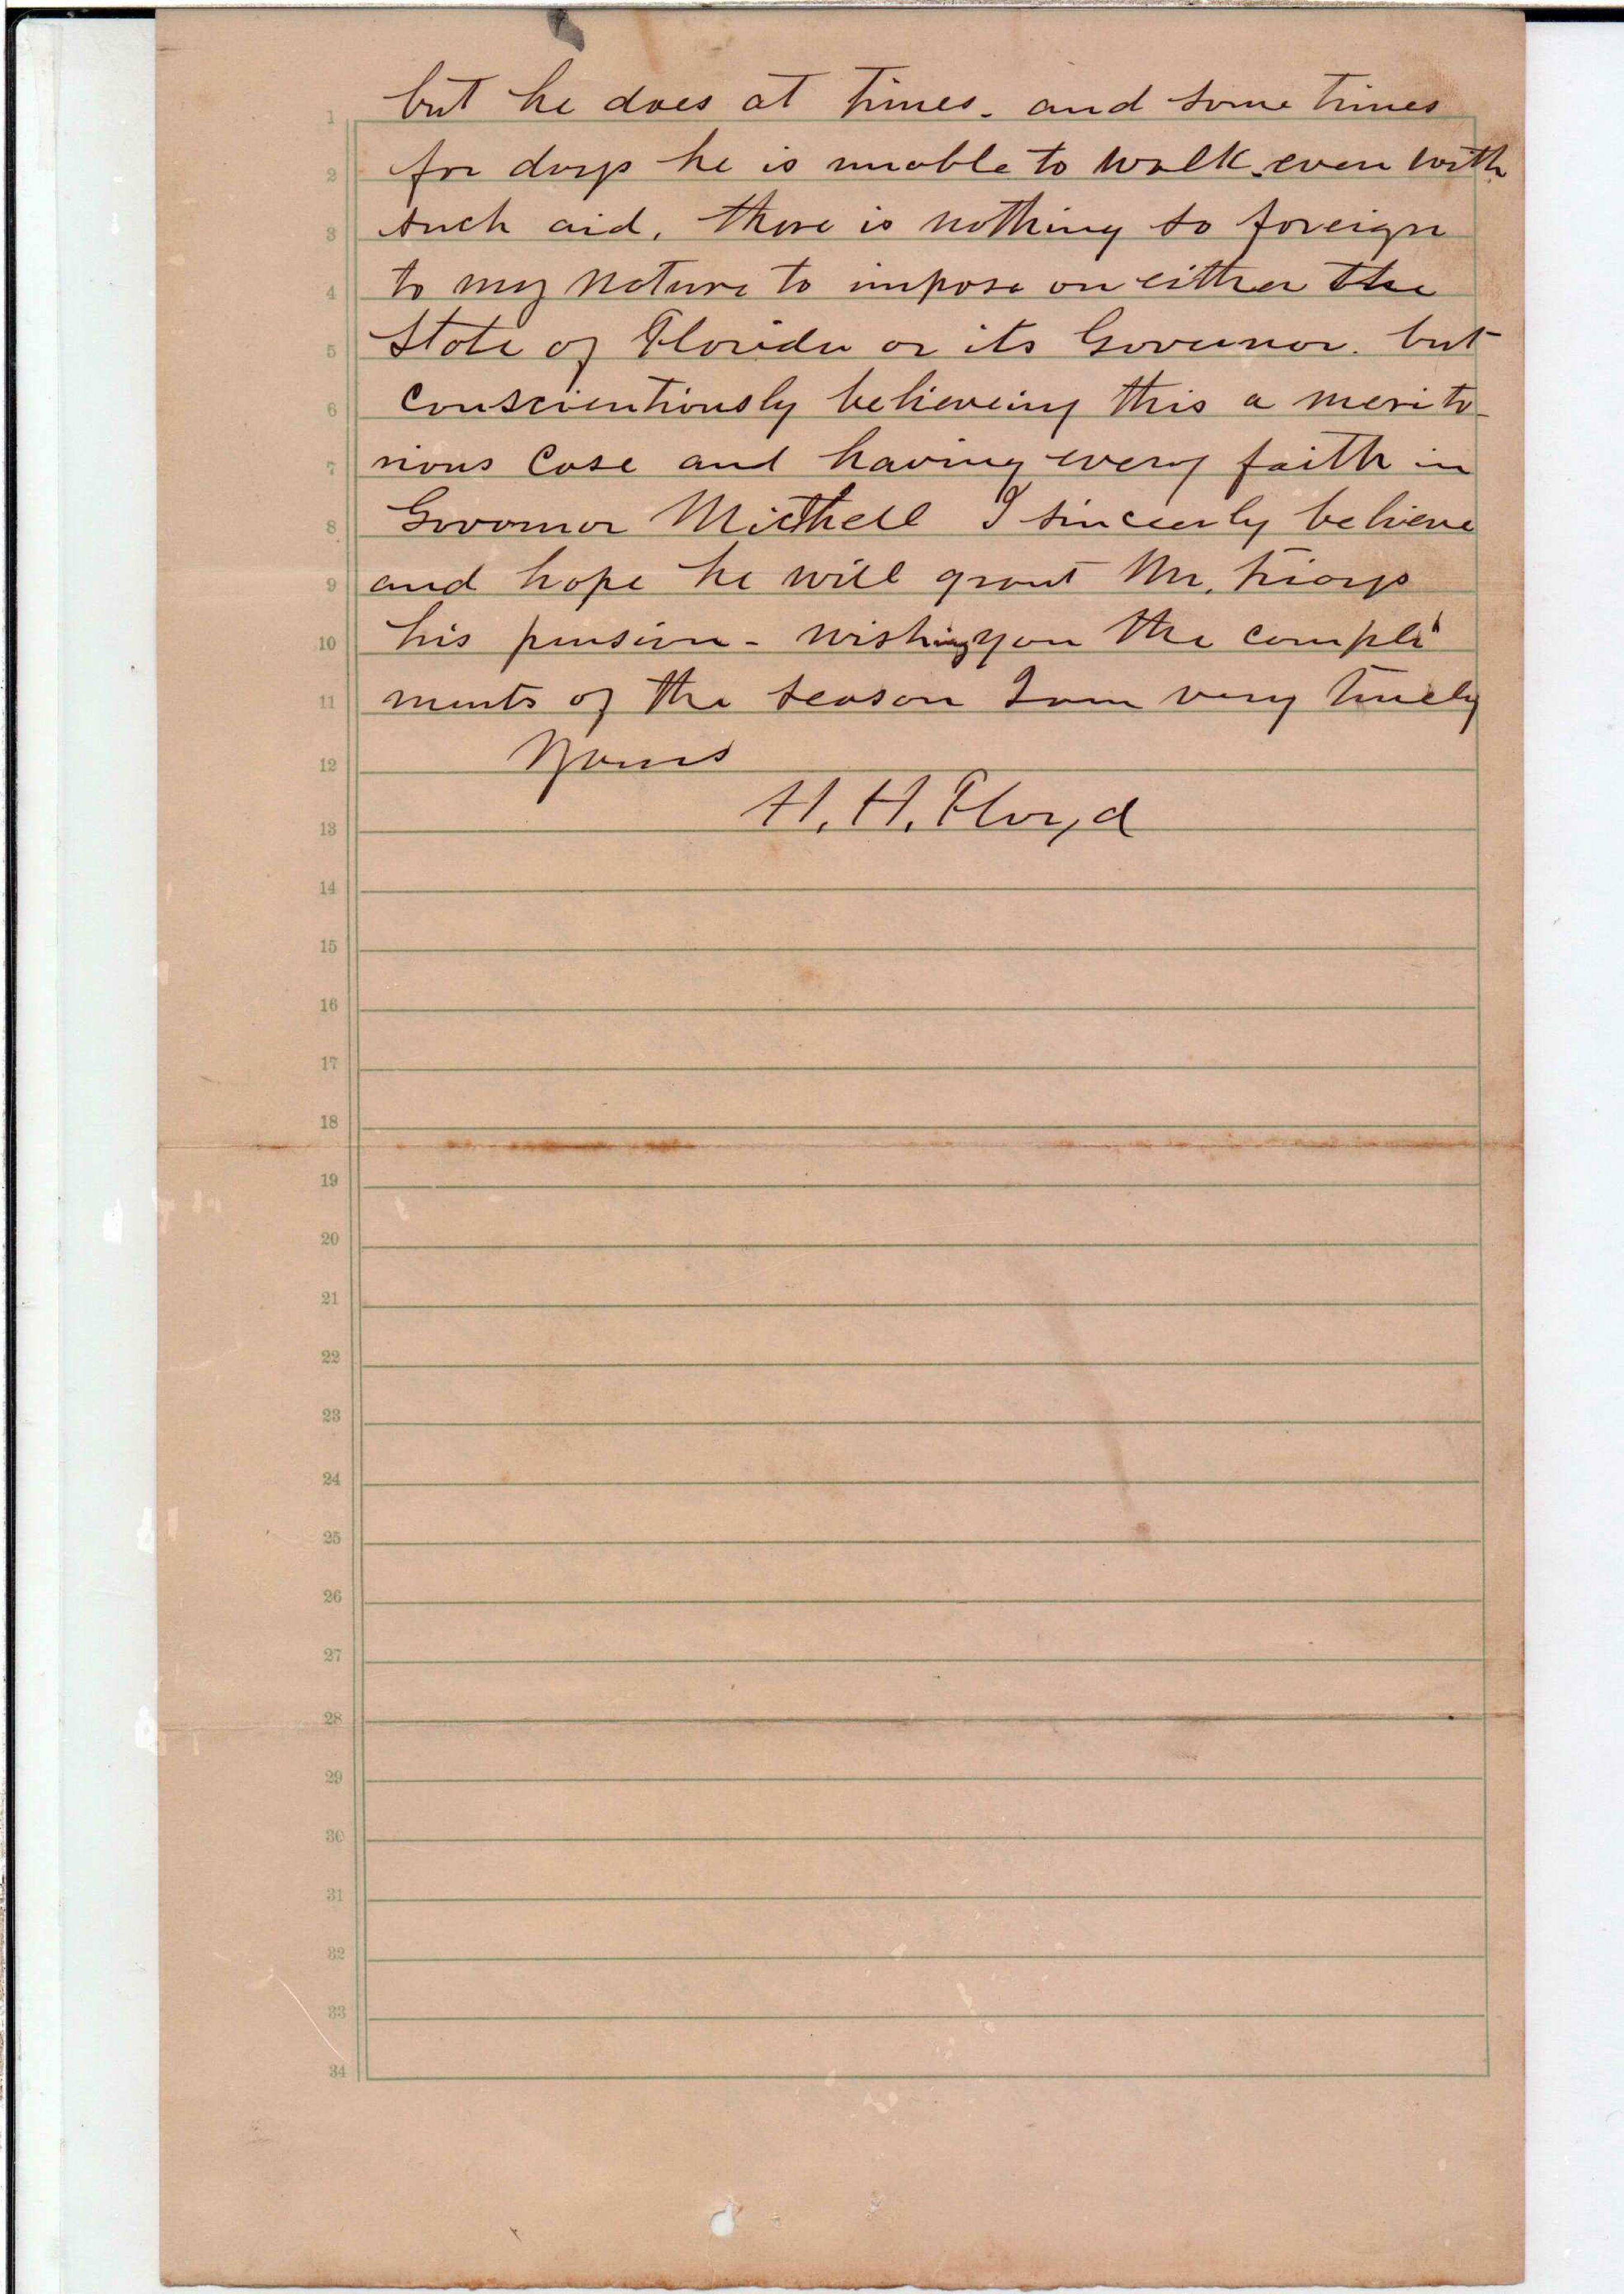 but he does at times. and some times
1
for days he is unable to walk. even with
2
such aid. there is nothing so foreign
3
to my nature to impose on either the
4
State of Florida or its Governor. but
5
conscientiously believeing this a merito-
6
rious case and having every faith in
7
Governor Mitchell I sincerly believe
8
and hope he will grant Mr.
9
his pension - wishing you the compli
10
ments of the season I am very truely
11
Yours
12
H. H. Floyd
13
14
15
16
17
18
19
20
21
22
23
24
25
26
27
28
29
30
31
32
33
34